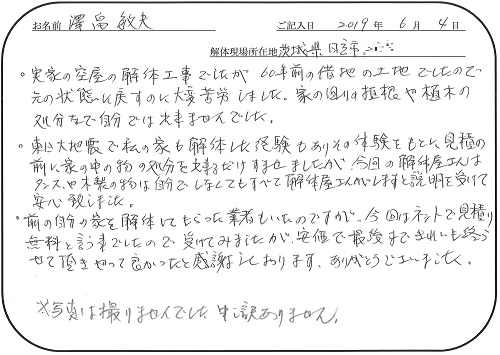 お名前 澤畠 敏夫 ご記入日 2019 年 6 月 4 日
解体現場所在地 茨城県日立市
・実家の空屋の解体工事でしたが 60年前の借地の土地でしたので
元の状態に戻すのに大変苦労しました。家の回りは垣根や植木の
処分など自分では出来ませんでした。
・東日大地震で私の家も解体した経験もありその体験をもとに見積の
前に家の中の物の処分を出来るだけすませましたが 今回の解体屋さんは
タンスや木製の物は自分でしなくてもすべて解体屋さんがしますと説明を受けて
安心致しました。
・前の自分の家を解体してもらった業者もいたのですが、今回はネットで見積り
無料と言う事でしたので受けてみましたが、安価で最後まできれいに終らせ
せて頂きやって良かったと感謝しております、ありがとうございました。
※写真は撮りませんでした 申訳ありません。